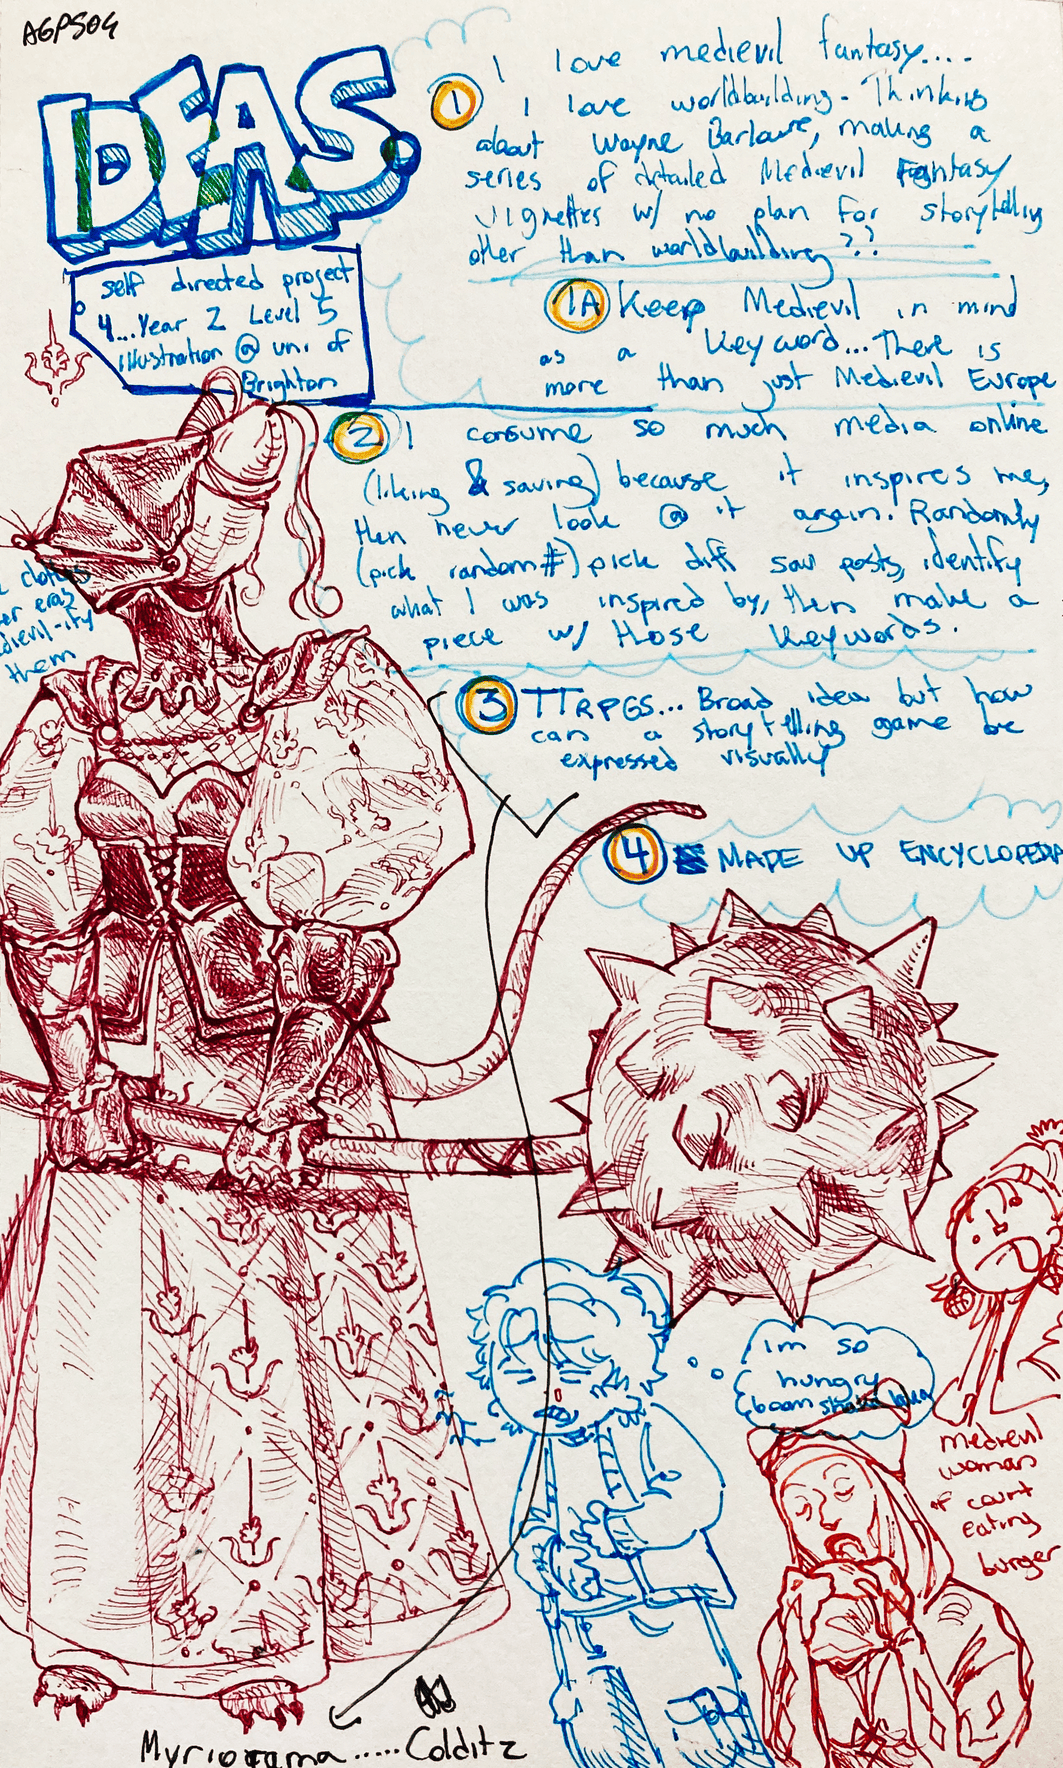 AGPS04
IDEAS.
self directed project
4...Year 2 Level 5
illustration @ uni of
Brighton
1 I love medievil fantasy....
I love worldbuilding. Thinking
about Wayne Barlowe, making a
series of detailed Medievil Fantasy
vignettes w/ no plan for storytelling
other than worldbuilding??
1A Keep Medievil in mind
as a Keyword... There is
more than just Medievil Europe
2 I consume so much media online
(liking & saving) because it inspires me,
then never look @ it again. Randomly
(pick random #) pick diff sav posts, identify
what I was inspired by, then make a
piece w/ those keywords.
clothes
er eras
dievil-ify
them
3 TTRPGS... Broad idea but how
can a storytelling game be
expressed visually
4 MADE UP ENCYCLOPEDIA
im so
hungry
boom
medievil
woman
of court
eating
burger
Myriorama.....Colditz